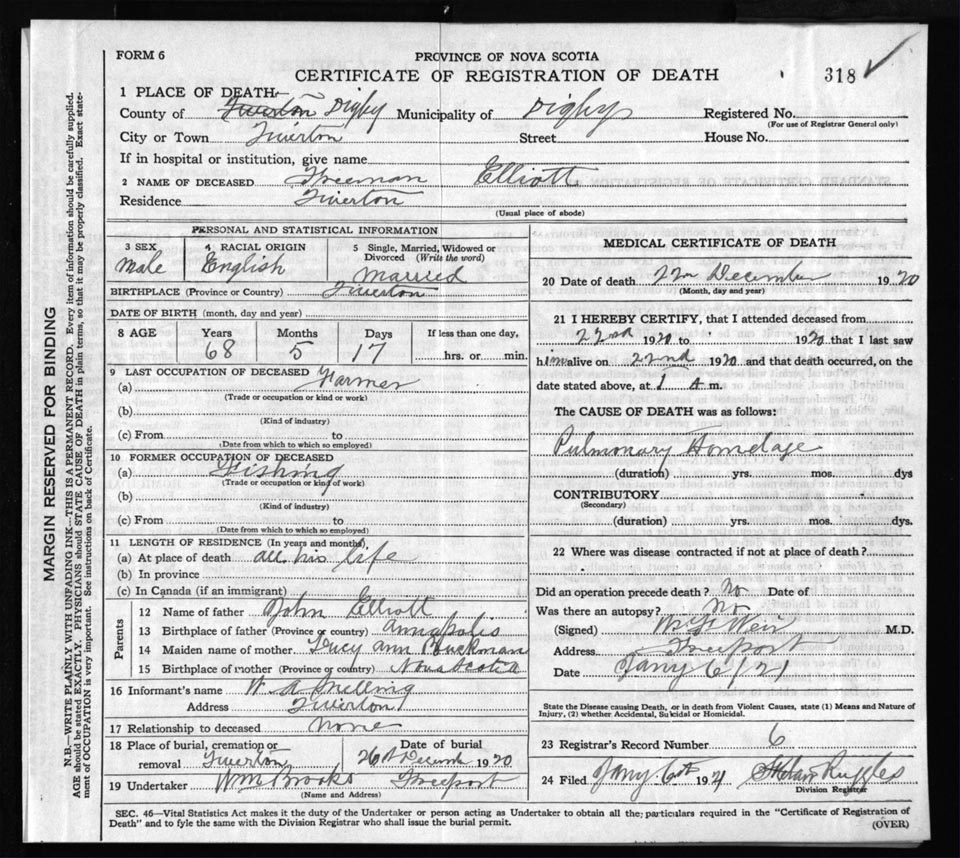 FORM 6
PROVINCE OF NOVA SCOTIA
CERTIFICATE OF REGISTRATION OF DEATH
318 ✓
1 PLACE OF DEATH
County of Tiverton Digby Municipality of Digby Registered No.
(For use of Registrar General only)
City or Town Tiverton Street House No.
If in hospital or institution, give name
2 NAME OF DECEASED Freeman Elliott
Residence Tiverton
(Usual place of abode)
PERSONAL AND STATISTICAL INFORMATION
3 SEX 4 RACIAL ORIGIN 5 Single, Married, Widowed or
Divorced (Write the word)
Male English Married
BIRTHPLACE (Province or Country) Tiverton
DATE OF BIRTH (month, day and year)
8 AGE Years Months Days If less than one day,
68 5 17 hrs. or min.
9 LAST OCCUPATION OF DECEASED
(a) Farmer
(Trade or occupation or kind or work)
(b)
(Kind of industry)
(c) From to
(Date from which to which so employed)
10 FORMER OCCUPATION OF DECEASED
(a) Fishing
(Trade or occupation or kind of work)
(b)
(Kind of industry)
(c) From to
(Date from which to which so employed)
11 LENGTH OF RESIDENCE (In years and months)
(a) At place of death all his life
(b) In province
(c) In Canada (if an immigrant)
Parents
12 Name of father John Elliott
13 Birthplace of father (Province or country) Annapolis
14 Maiden name of mother Lucy Ann
15 Birthplace of mother (Province or country) Nova Scotia
16 Informant's name W A
Address Tiverton
17 Relationship to deceased None
18 Place of burial, cremation or Date of burial
removal Tiverton 26th December 1920
19 Undertaker Wm Brooks Freeport
(Name and Address)
MEDICAL CERTIFICATE OF DEATH
20 Date of death 22n December 1920
(Month, day and year)
21 I HEREBY CERTIFY, that I attended deceased from
22nd 1920 to 1920 that I last saw
him alive on 22nd 1920 and that death occurred, on the
date stated above, at 1 A m.
The CAUSE OF DEATH was as follows:
Pulmonary
(duration) yrs. mos. dys
CONTRIBUTORY
(Secondary)
(duration) yrs. mos. dys.
22 Where was disease contracted if not at place of death?
Did an operation precede death? No Date of
Was there an autopsy? No
(Signed) Weir M.D.
Address Freeport
Date Jany 6/21
State the Disease causing Death, or in death from Violent Causes, state (1) Means and Nature of
Injury, (2) whether Accidental, Suicidal or Homicidal.
23 Registrar's Record Number 6
24 Filed Jany 6th 1921 Ruggles
Division Registrar
SEC. 46—Vital Statistics Act makes it the duty of the Undertaker or person acting as Undertaker to obtain all the particulars required in the "Certificate of Registration of
Death" and to fyle the same with the Division Registrar who shall issue the burial permit.
(OVER)
MARGIN RESERVED FOR BINDING
N.B.—WRITE PLAINLY WITH UNFADING INK—THIS IS A PERMANENT RECORD. Every item of information should be carefully supplied.
AGE should be stated EXACTLY. PHYSICIANS should STATE CAUSE OF DEATH in plain terms, so that it may be properly classified. Exact state-
ment of OCCUPATION is very important. See instructions on back of Certificate.